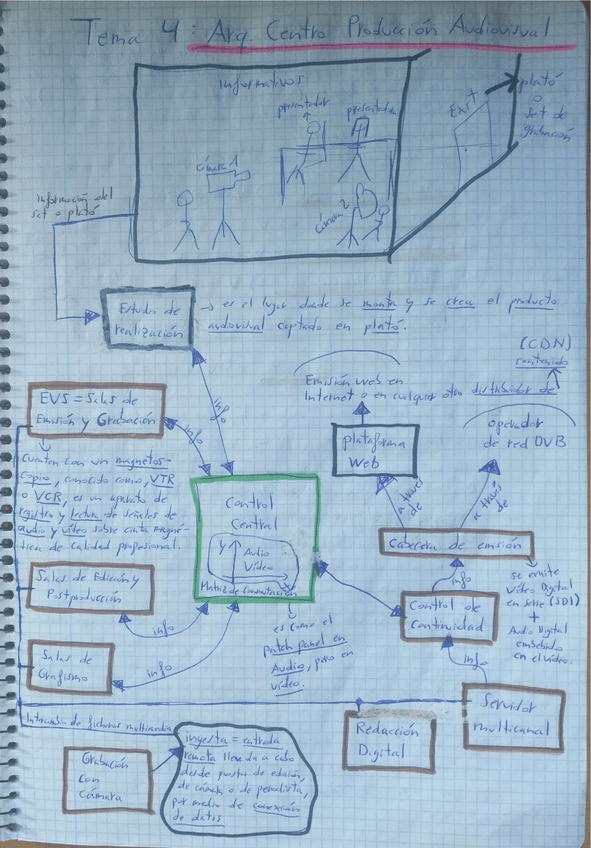 Tema 4: Arq. Centro Producción Audiovisual
Informativos
presentador
presentador
cámara 1
cámara 2
Exit
plató
o
set de
grabación
Información del
set o plató
Estudio de
realización
→ es el lugar donde se monta y se crea el producto
audiovisual captado en plató.
(CDN)
contenido
Emisión web en
Internet o en cualquier otro distribuidor de
operador
de red DVB
EVS = Salas de
Emisión y Grabación
info
info
Cuentan con un magnetos-
copio, conocido como, VTR
o VCR, es un aparato de
registro y lectura de señales de
audio y vídeo sobre cinta magné-
tica de calidad profesional.
plataforma
Web
a través
de
a través
de
Control
Central
Y
Audio
Vídeo
X
Matriz de Conmutación
Cabecera de emisión
se emite
Vídeo Digital
en serie (SDI)
+
Audio Digital
embebido
en el vídeo.
info
Control de
Continuidad
Salas de Edición y
Postproducción
info
es como el
patch panel en
Audio, pero en
vídeo.
info
Salas de
Grafismo
info
Servidor
multicanal
Intercambio de ficheros multimedia
Redacción
Digital
Grabación
con
Cámara
ingesta = entrada
remota llevada a cabo
desde puestos de edición,
de cámara o de periodista,
por medio de conexión
de datos